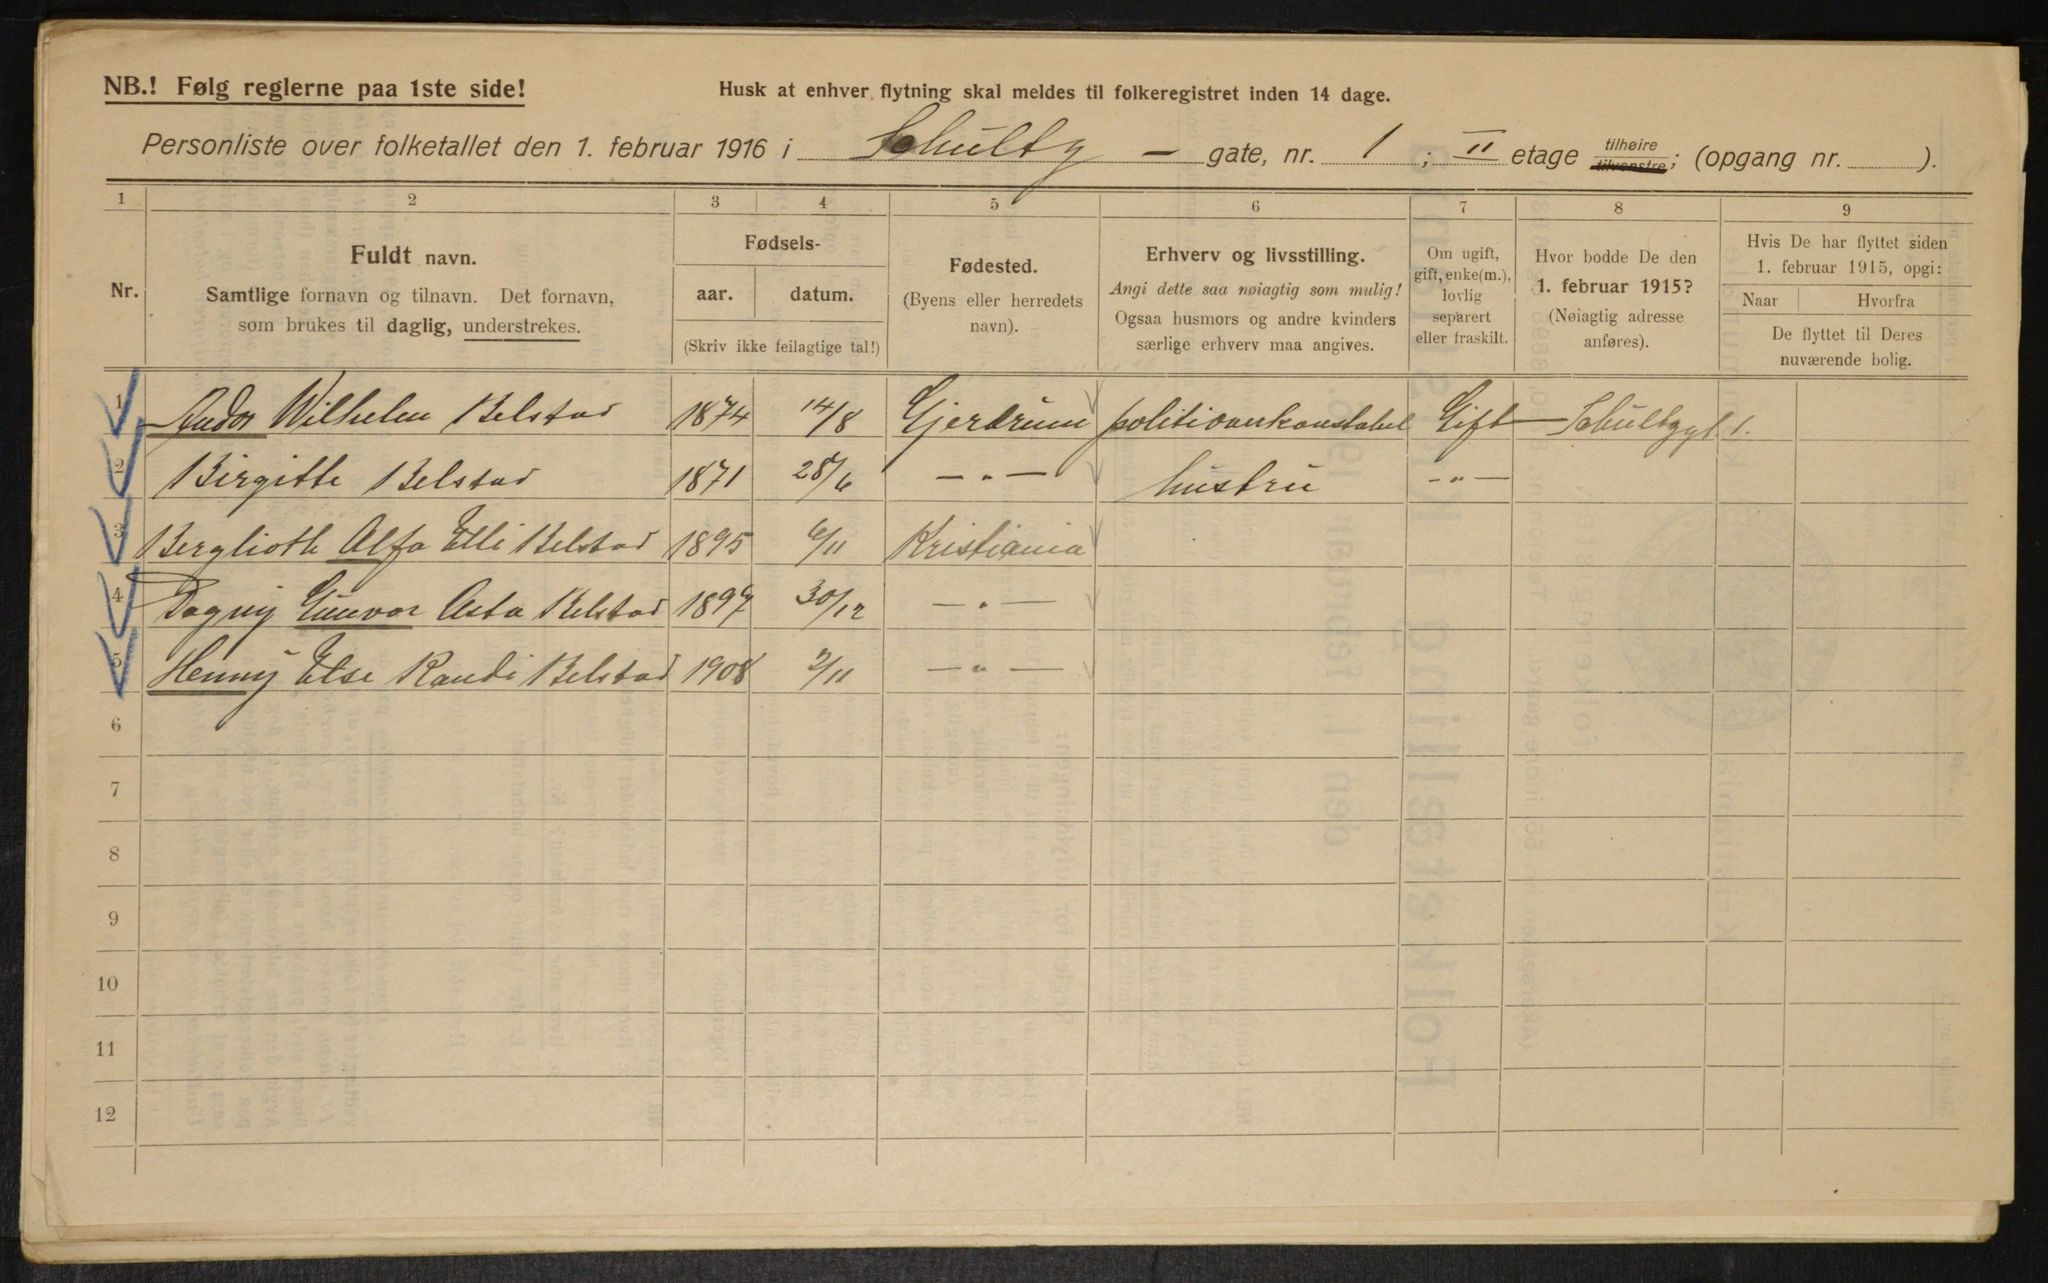 NB.! Følg reglerne paa 1ste side!
Husk at enhver flytning skal meldes til folkeregistret inden 14 dage.
Personliste over folketallet den 1. februar 1916 i Schultz — gate, nr. 1 ; II etage tilhøire tilvenstre; (opgang nr. ).
1 2 3 4 5 6 7 8 9
Nr.
Fuldt navn.
Samtlige fornavn og tilnavn. Det fornavn,
som brukes til daglig, understrekes.
Fødsels-
aar. datum.
(Skriv ikke feilagtige tal!)
Fødested.
(Byens eller herredets
navn).
Erhverv og livsstilling.
Angi dette saa nøiagtig som mulig!
Ogsaa husmors og andre kvinders
særlige erhverv maa angives.
Om ugift,
gift, enke(m.),
lovlig
separert
eller fraskilt.
Hvor bodde De den
1. februar 1915?
(Nøiagtig adresse
anføres).
Hvis De har flyttet siden
1. februar 1915, opgi:
Naar Hvorfra
De flyttet til Deres
nuværende bolig.
1 Andor Wilhelm Belstad 1874 14/8 Gjerdrum politioverkonstabel Gift Schultzgt. 1.
2 Birgitte Belstad 1871 28/6 — „ — hustru — „ —
3 Berglioth Alfa Elli Belstad 1895 6/11 Kristiania
4 Dagny Gunvor Asta Belstad 1897 30/12 — „ —
5 Henny Else Randi Belstad 1908 2/11 — „ —
6
7
8
9
10
11
12